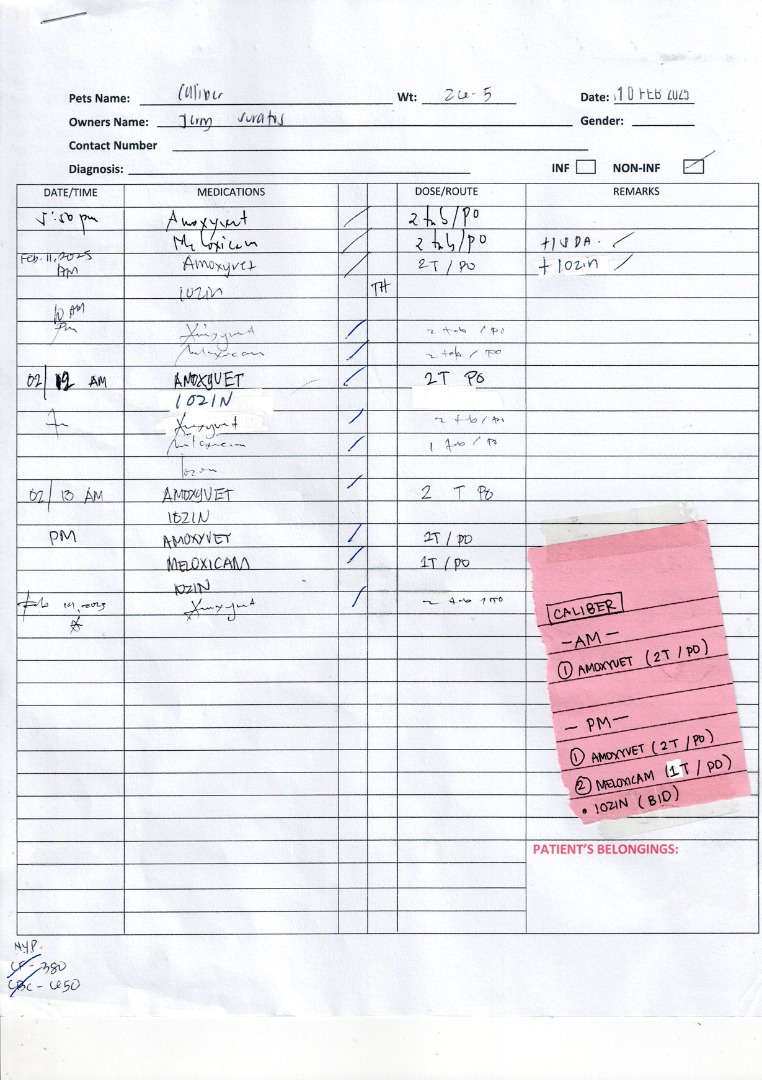 Pets Name: Caliber Wt: Date: 10 FEB 2025
Owners Name: Gender:
Contact Number
Diagnosis: INF NON-INF
DATE/TIME MEDICATIONS DOSE/ROUTE REMARKS
5:50 pm Amoxyvet 2 tab/PO
Meloxicam 2 tab/PO
Feb. 11, 2025 AM Amoxyvet 2T / PO + IOZIN
IOZIN TH
10 AM
pm Amoxyvet 2 tab / PO
Meloxicam 2 tab / PO
02/12 AM AMOXYVET 2T PO
IOZIN
Amoxyvet 2 tab / PO
Meloxicam 1 tab / PO
Iozin
02/13 AM AMOXYVET 2 T PO
IOZIN
PM AMOXYVET 2T / PO
MELOXICAM 1T / PO
IOZIN
Feb 14, 2025 Amoxyvet 2 tab / PO
CALIBER
- AM -
① AMOXYVET (2T / PO)
- PM -
① AMOXYVET (2T / PO)
② MELOXICAM (1T / PO)
• IOZIN (BID)
PATIENT'S BELONGINGS:
NYP.
CF - 380
CBC - 650